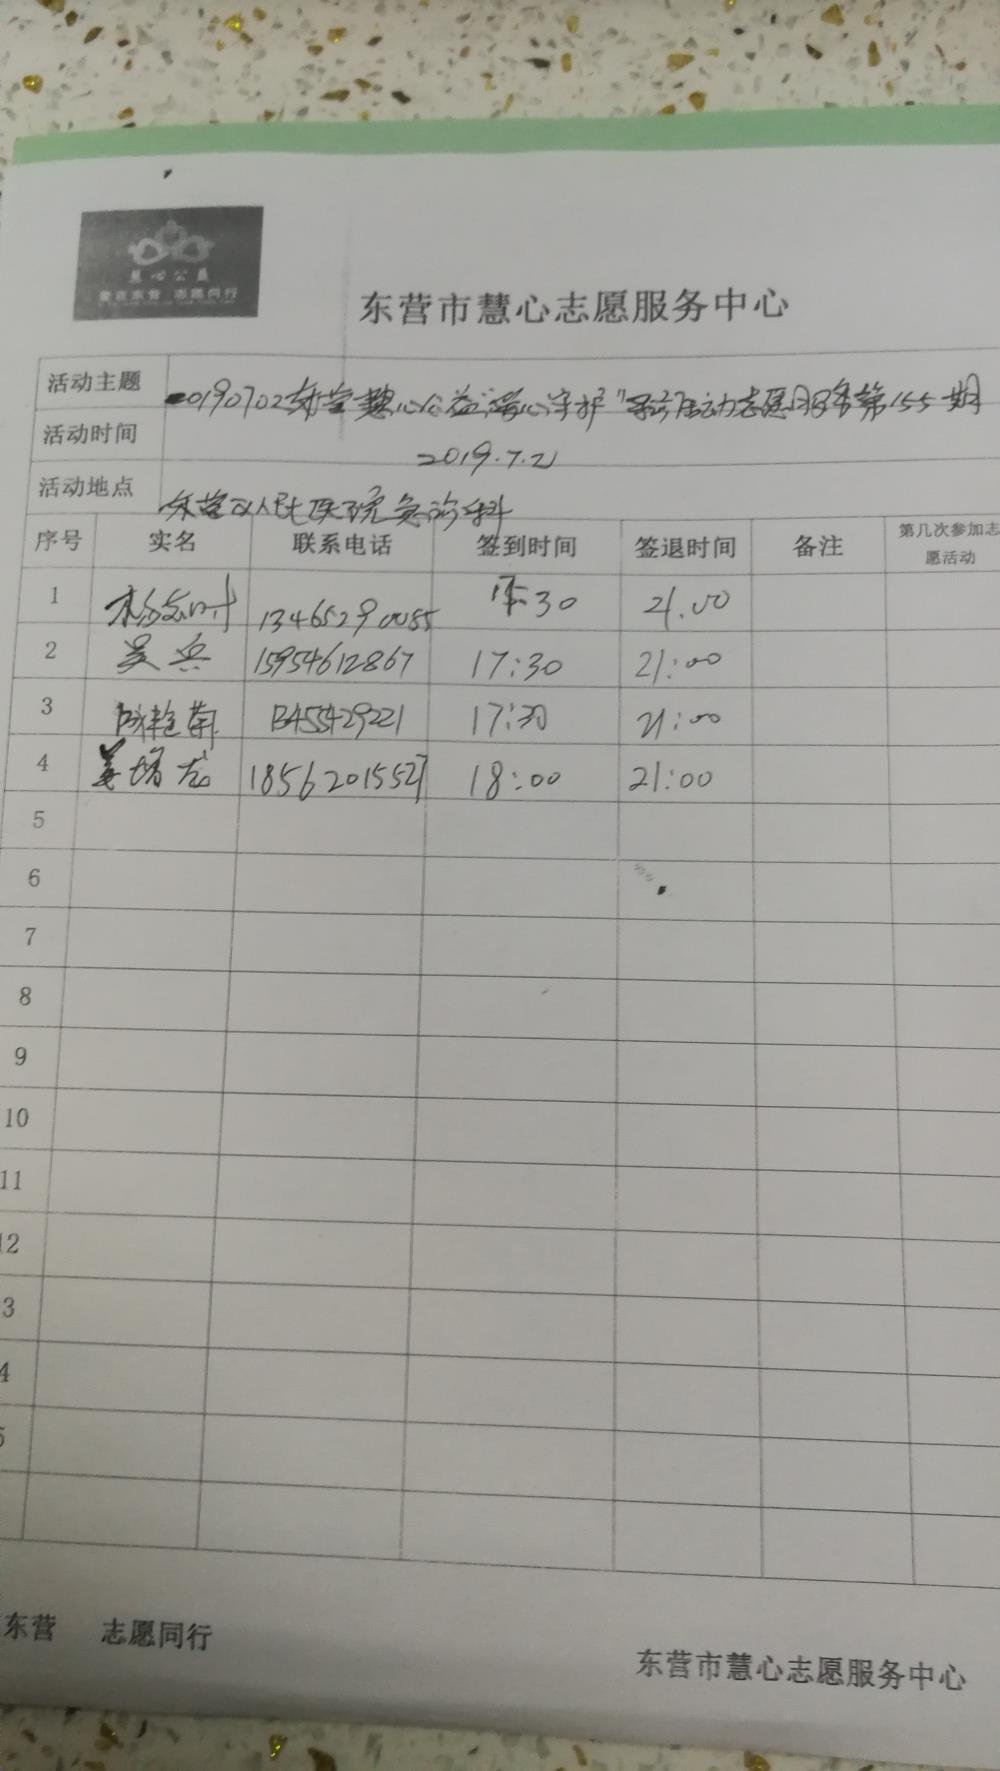 慧心公益
爱在东营 志愿同行
东营市慧心志愿服务中心
活动主题 20190702东营慧心公益"爱心守护"导诊活动志愿服务第155期
活动时间 2019.7.2
活动地点 东营区人民医院急诊科
序号 实名 联系电话 签到时间 签退时间 备注 第几次参加志愿活动
1 13465290085 17:30 21.00
2 吴兵 15954612867 17:30 21:00
3 13455429221 17:30 21:00
4 姜增龙 18562015527 18:00 21:00
5
6
7
8
9
10
11
12
3
4
5
东营 志愿同行
东营市慧心志愿服务中心